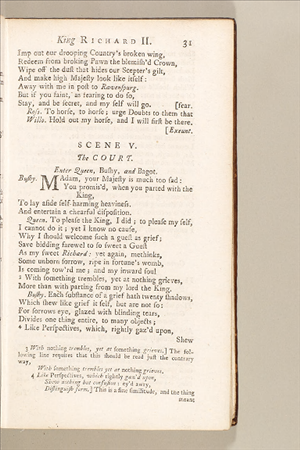 King RICHARD II. 31
Imp out our drooping Country's broken wing,
Redeem from broking Pawn the blemish'd Crown,
Wipe off the dust that hides our Scepter's gilt,
And make high Majesty look like itself:
Away with me in post to Ravenspurg.
But if you faint, as fearing to do so,
Stay, and be secret, and my self will go. [fear.
Ross. To horse, to horse; urge Doubts to them that
Willo. Hold out my horse, and I will first be there.
[Exeunt.
SCENE V.
The COURT.
Enter Queen, Bushy, and Bagot.
Bushy. MAdam, your Majesty is much too sad:
You promis'd, when you parted with the
King,
To lay aside self-harming heaviness,
And entertain a chearful disposition.
Queen. To please the King, I did; to please my self,
I cannot do it; yet I know no cause,
Why I should welcome such a guest as grief;
Save bidding farewel to so sweet a Guest
As my sweet Richard: yet again, methinks,
Some unborn sorrow, ripe in fortune's womb,
Is coming tow'rd me; and my inward soul
3 With something trembles, yet at nothing grieves,
More than with parting from my lord the King.
Bushy. Each substance of a grief hath twenty shadows,
Which shew like grief it self, but are not so:
For sorrows eye, glazed with blinding tears,
Divides one thing entire, to many objects;
4 Like Perspectives, which, rightly gaz'd upon,
Shew
3 With nothing trembles, yet at something grieves.] The fol-
lowing line requires that this should be read just the contrary
way,
With something trembles yet at nothing grieves.
4 Like Perspectives, which rightly gaz'd upon,
Shew nothing but confusion: ey'd away,
Distinguish form.] This is a fine similitude, and the thing
meant